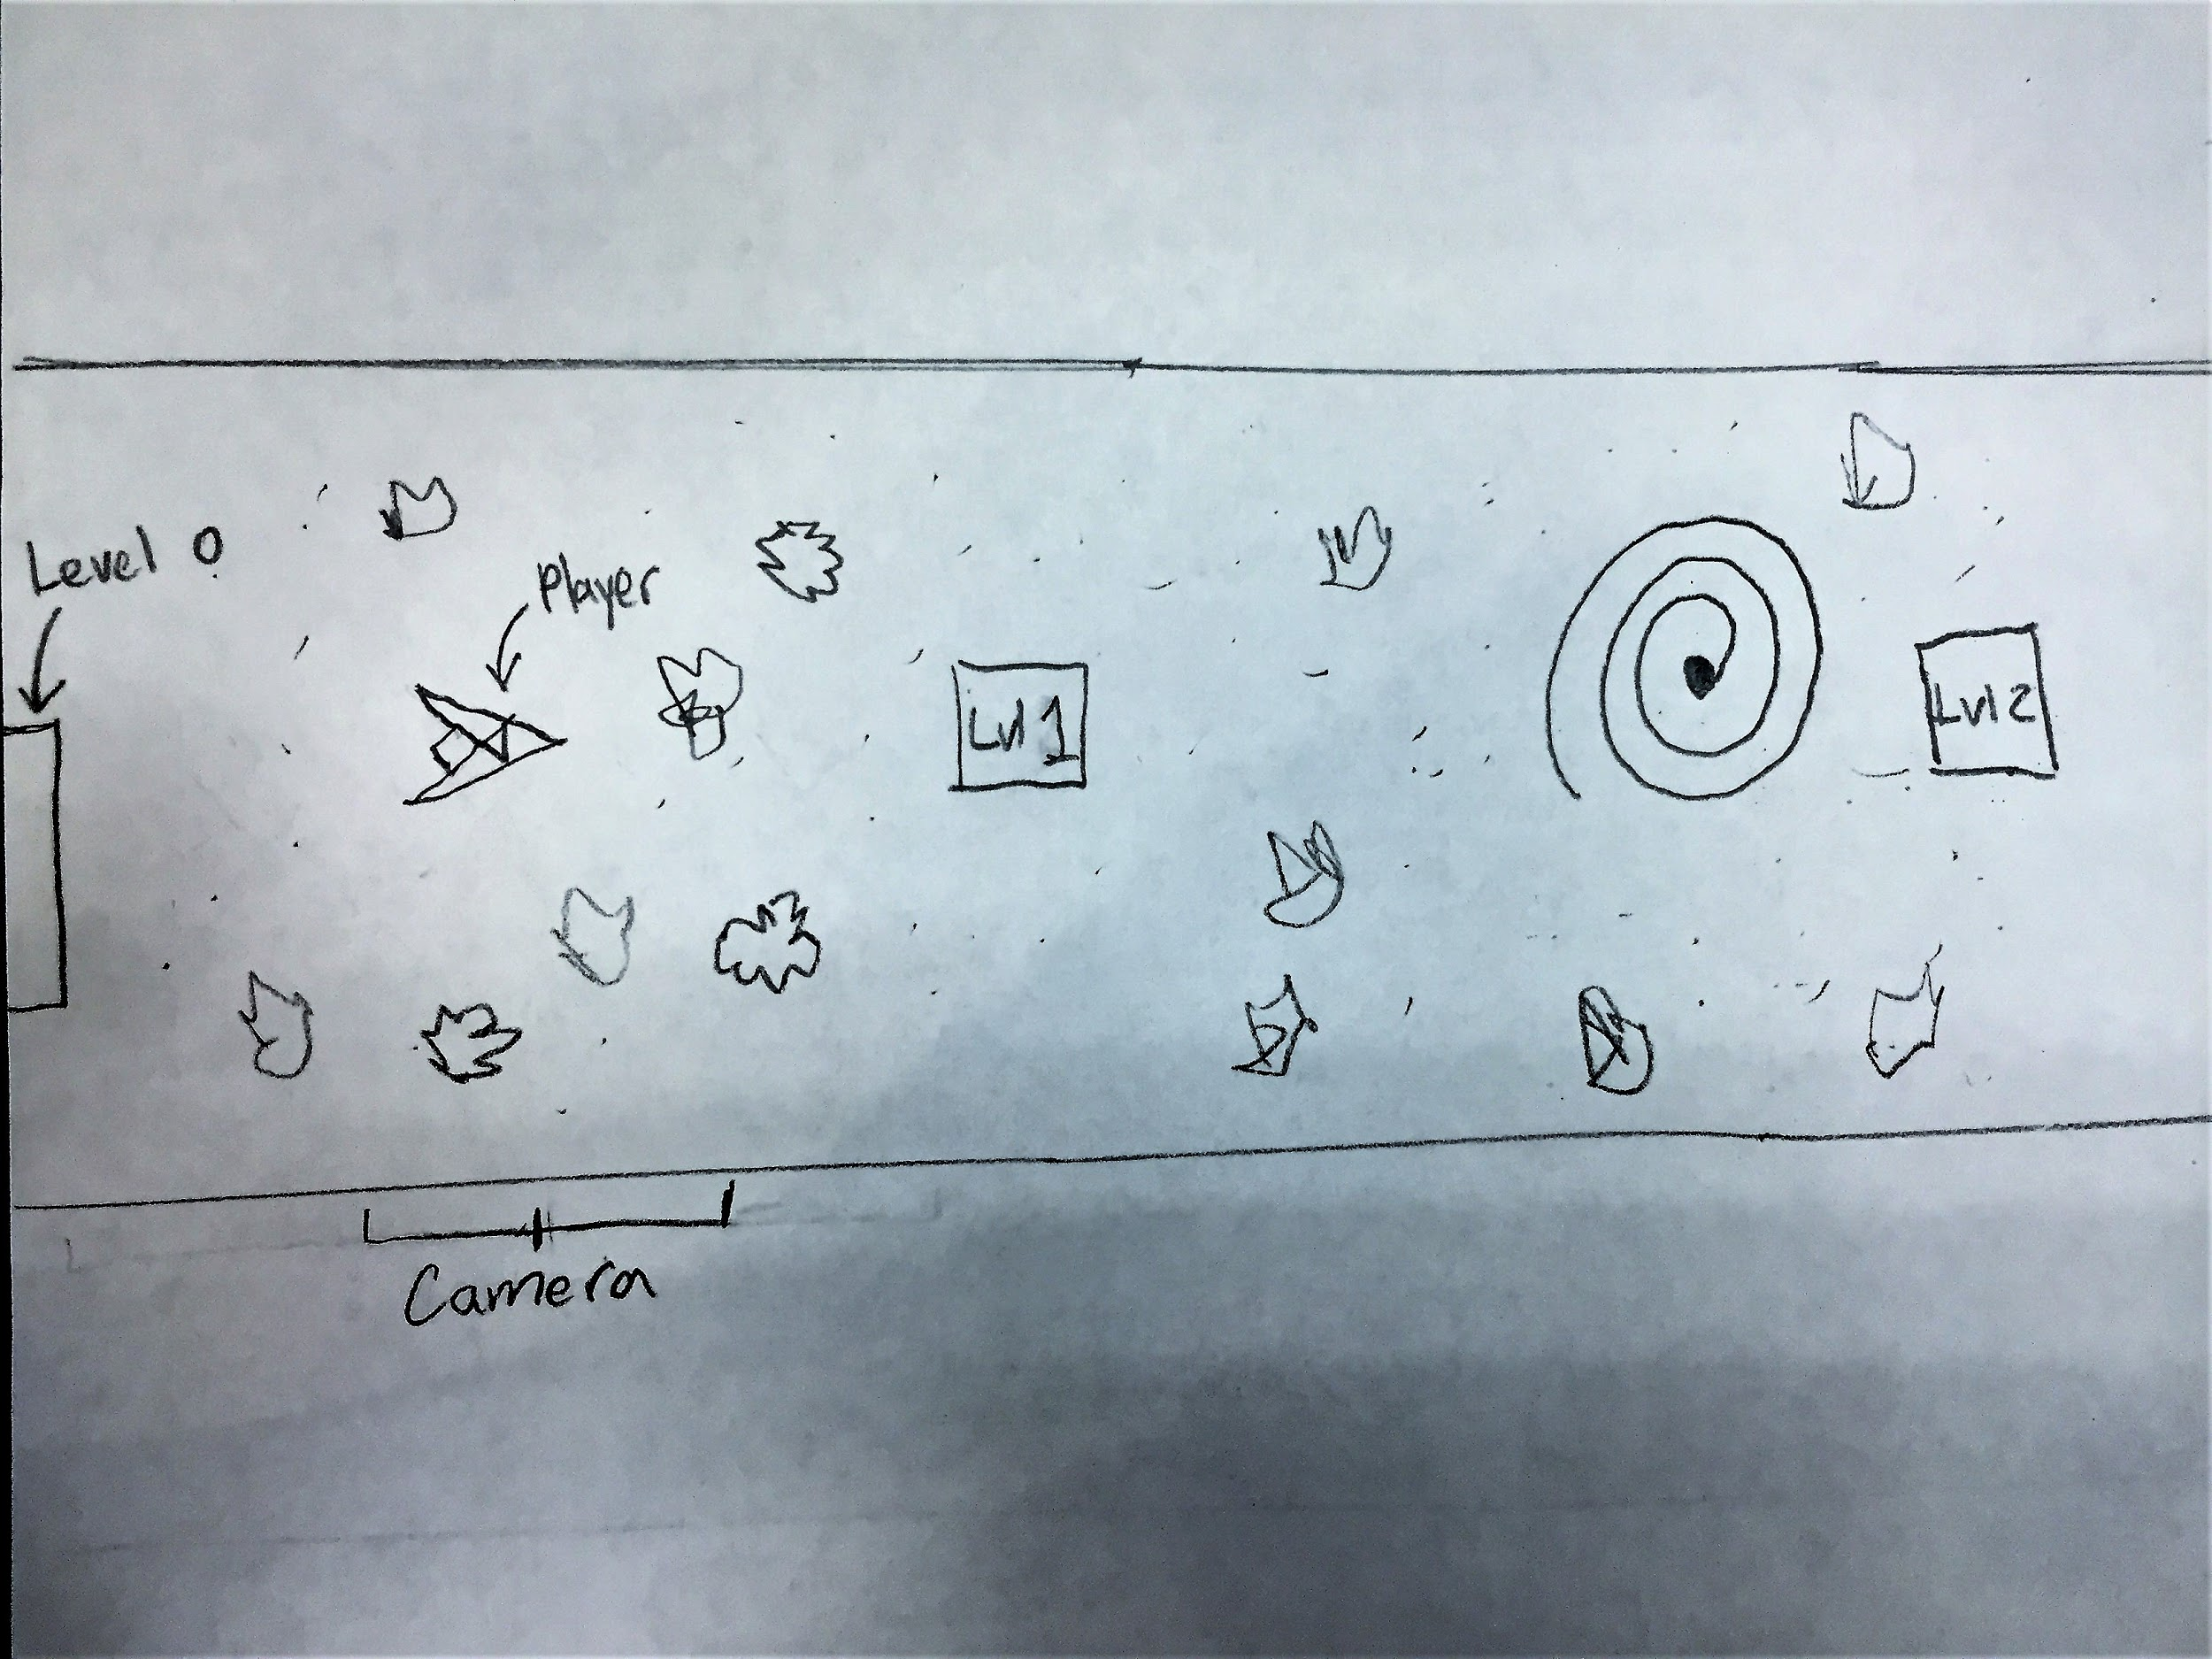 Level 0
Player
Lvl 1
Lvl 2
Camera